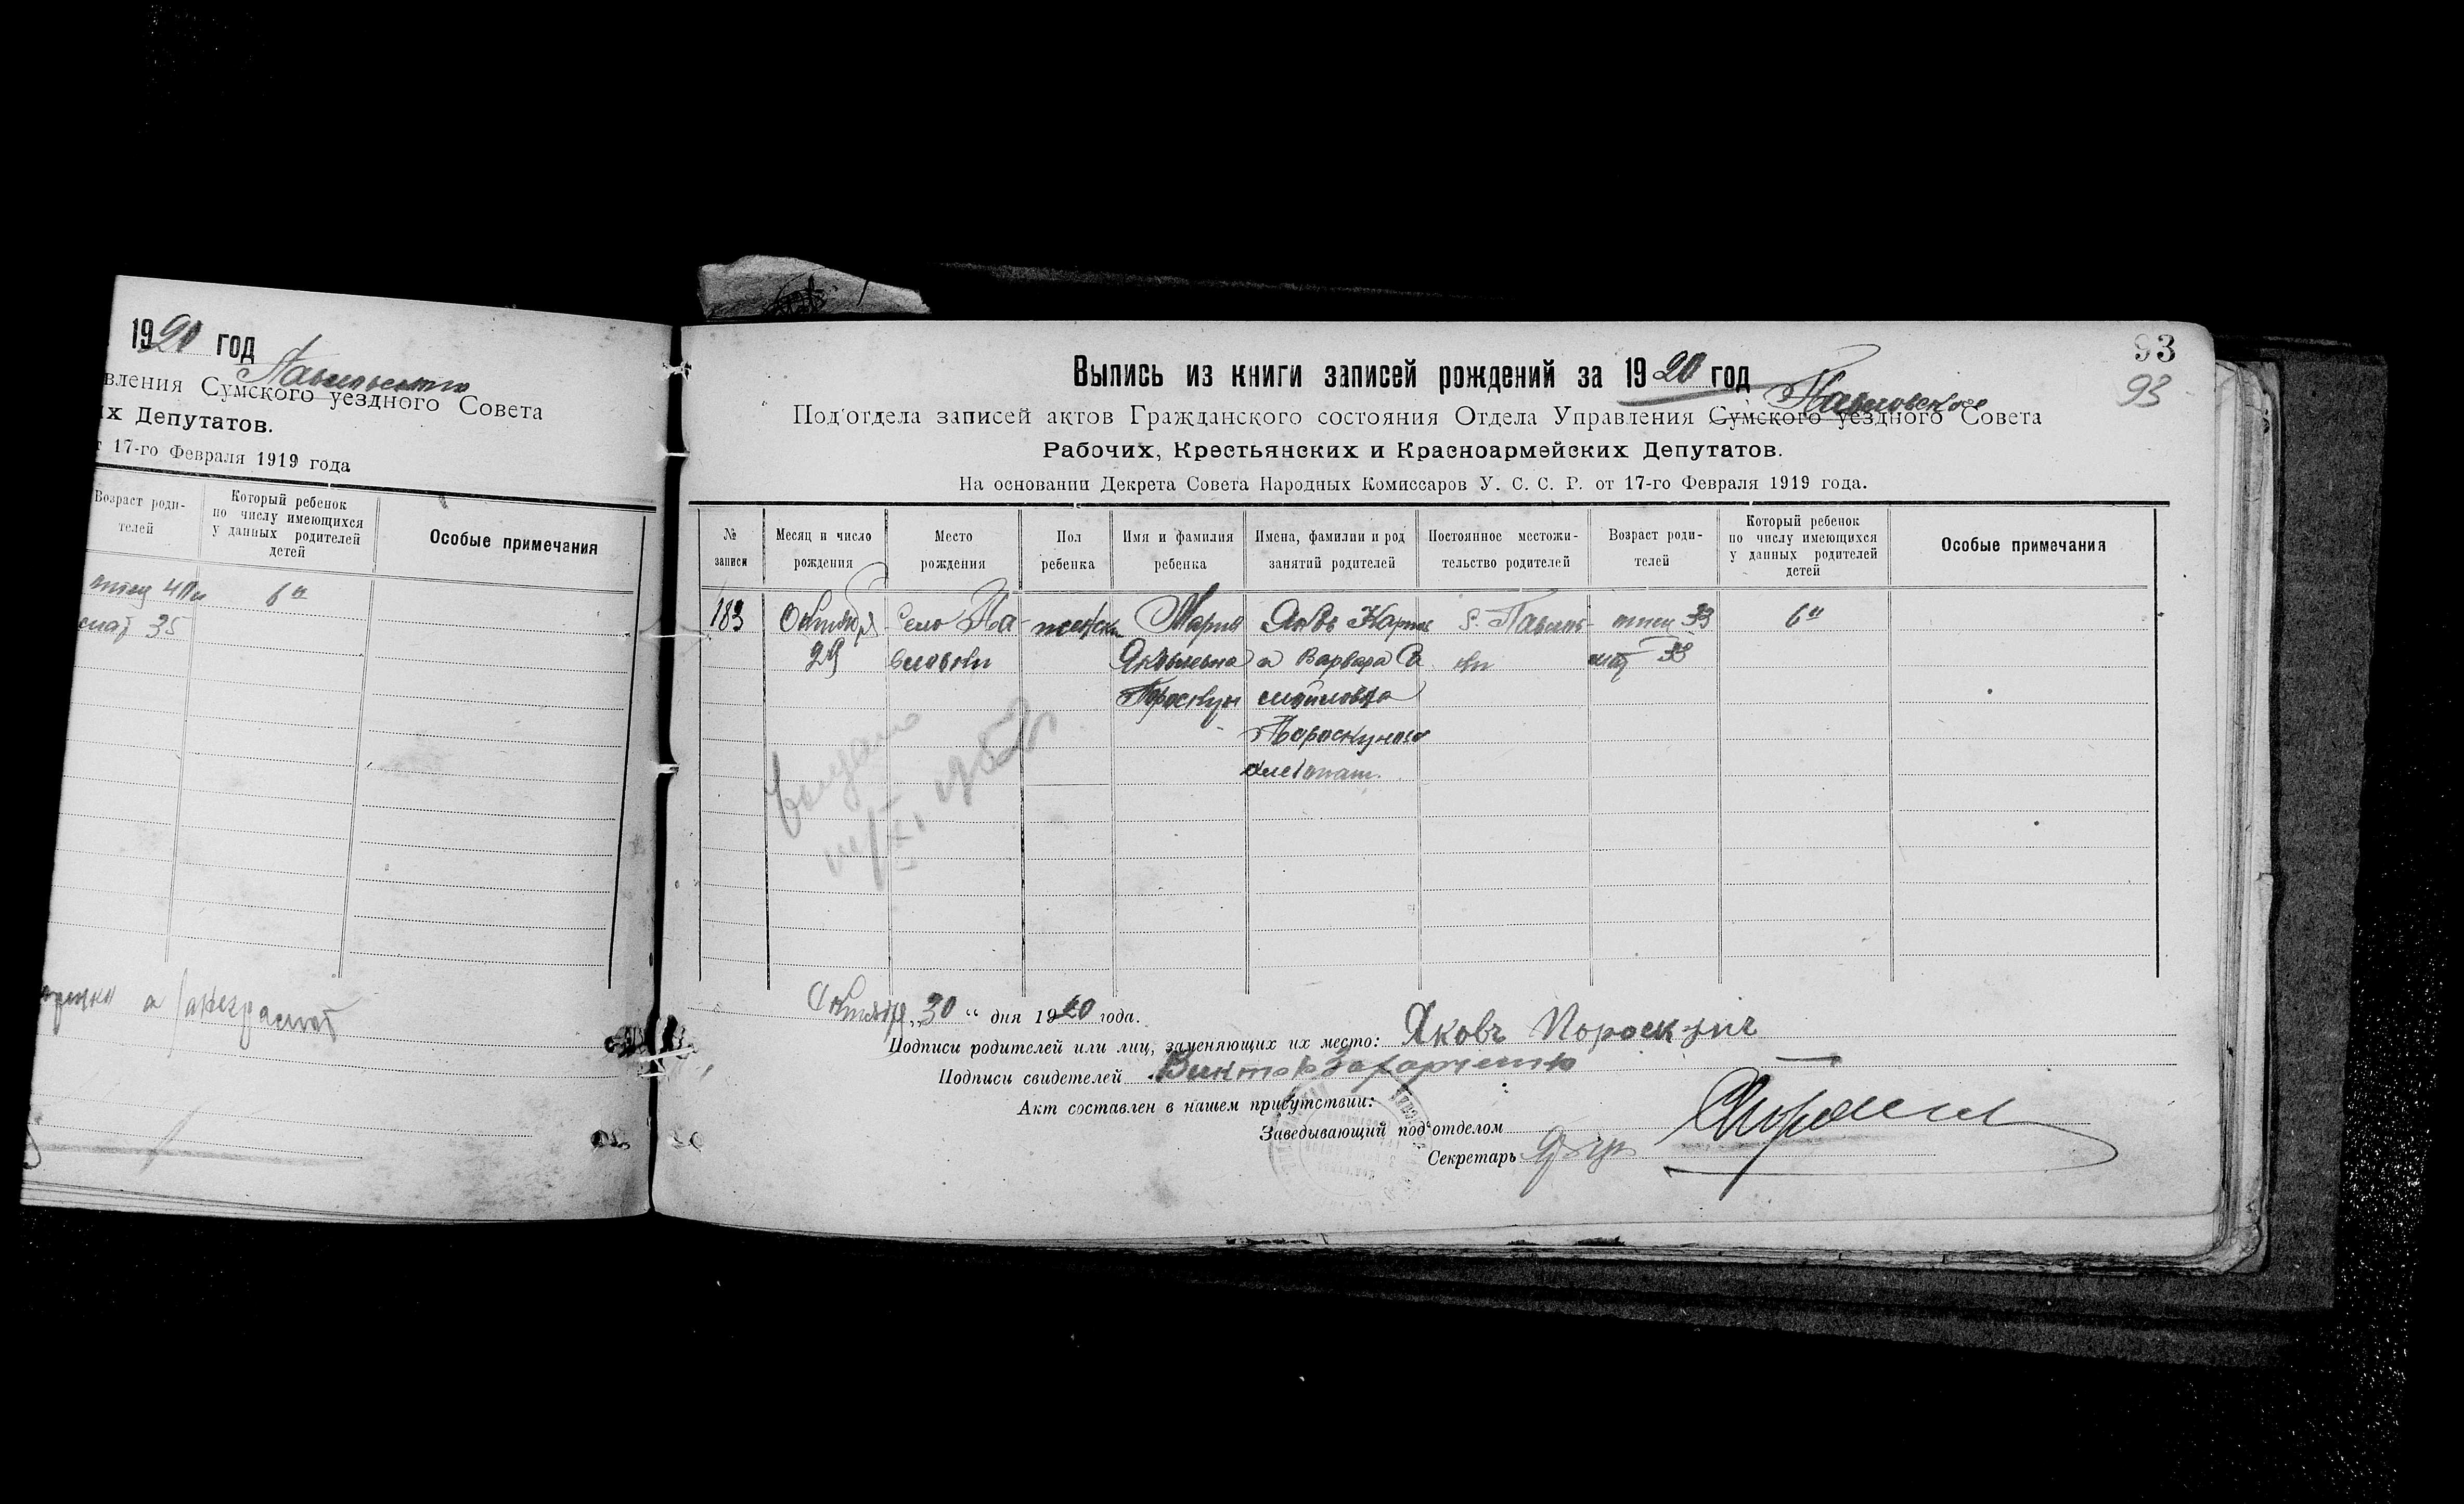 1920 год
Павловского
вления Сумского уездного Совета
их Депутатов.
т 17-го Февраля 1919 года
Возраст роди-
телей
Который ребенок
по числу имеющихся
у данных родителей
детей
Особые примечания
отец 40
6й
мат 35
93
93
Выпись из книги записей рождений за 1920 год
Павловского
Под'отдела записей актов Гражданского состояния Отдела Управления Сумского уездного Совета
Рабочих, Крестьянских и Красноармейских Депутатов.
На основании Декрета Совета Народных Комиссаров У. С. С. Р. от 17-го Февраля 1919 года.
№
записи
Месяц и число
рождения
Место
рождения
Пол
ребенка
Имя и фамилия
ребенка
Имена, фамилии и род
занятий родителей
Постоянное местожи-
тельство родителей
Возраст роди-
телей
Который ребенок
по числу имеющихся
у данных родителей
детей
Особые примечания
183 Октября Село Па- женски Мария Яковъ с. Павлов- отец 33 6й
29 вловки Яковлевна и Варвара ки мат 33
выдано
1952г.
Октября „30“ дня 1920 года.
Подписи родителей или лиц, заменяющих их место: Яковъ Пороскун
Подписи свидетелей Виктор Захарченко
Акт составлен в нашем присутствии:
Заведывающий под'отделом
Секретарь